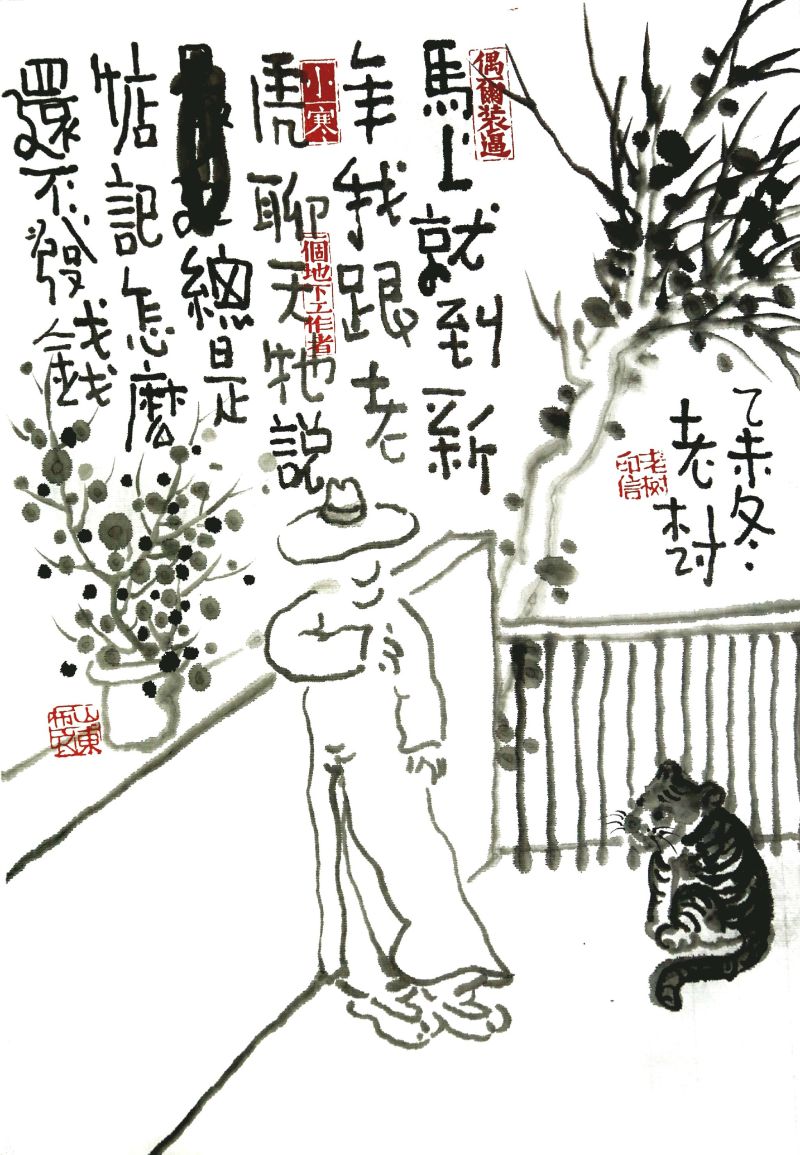 馬上就到新
年我跟老
虎聊天牠説
總是
惦記怎麼
還不發錢
乙未冬
老树
偶爾装逼
小寒
一個地下工作者
老树印信
山東